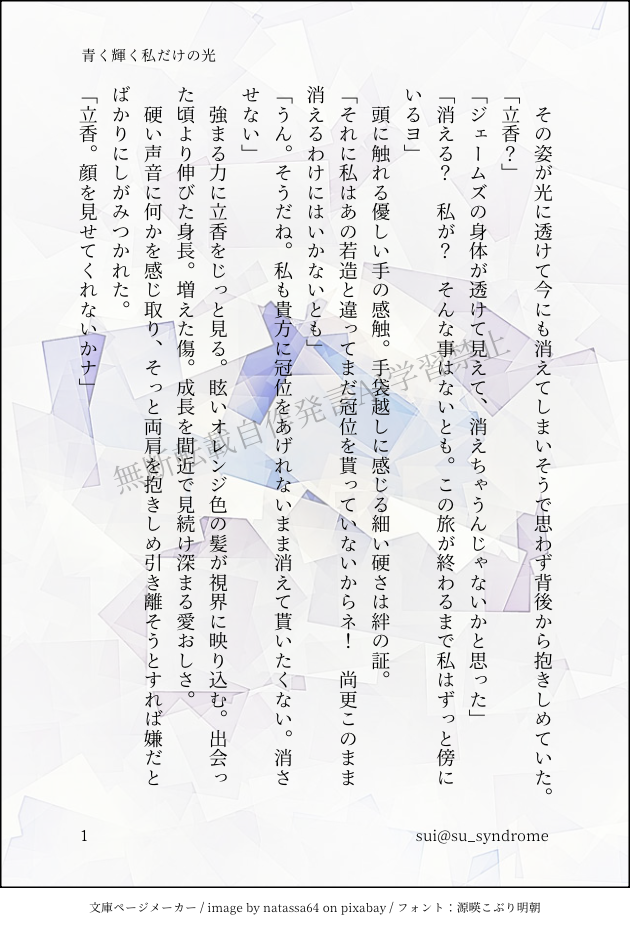 青く輝く私だけの光
　その姿が光に透けて今にも消えてしまいそうで思わず背後から抱きしめていた。
「立香？」
「ジェームズの身体が透けて見えて、消えちゃうんじゃないかと思った」
「消える？　私が？　そんな事はないとも。この旅が終わるまで私はずっと傍に
いるヨ」
　頭に触れる優しい手の感触。手袋越しに感じる細い硬さは絆の証。
「それに私はあの若造と違ってまだ冠位を貰っていないからネ！　尚更このまま
消えるわけにはいかないとも」
「うん。そうだね。私も貴方に冠位をあげれないまま消えて貰いたくない。消さ
せない」
　強まる力に立香をじっと見る。眩いオレンジ色の髪が視界に映り込む。出会っ
た頃より伸びた身長。増えた傷。成長を間近で見続け深まる愛おしさ。
　硬い声音に何かを感じ取り、そっと両肩を抱きしめ引き離そうとすれば嫌だと
ばかりにしがみつかれた。
「立香。顔を見せてくれないかナ」
無断転載自作発言AI学習禁止
1
sui@su_syndrome
文庫ページメーカー / image by natassa64 on pixabay / フォント：源暎こぶり明朝